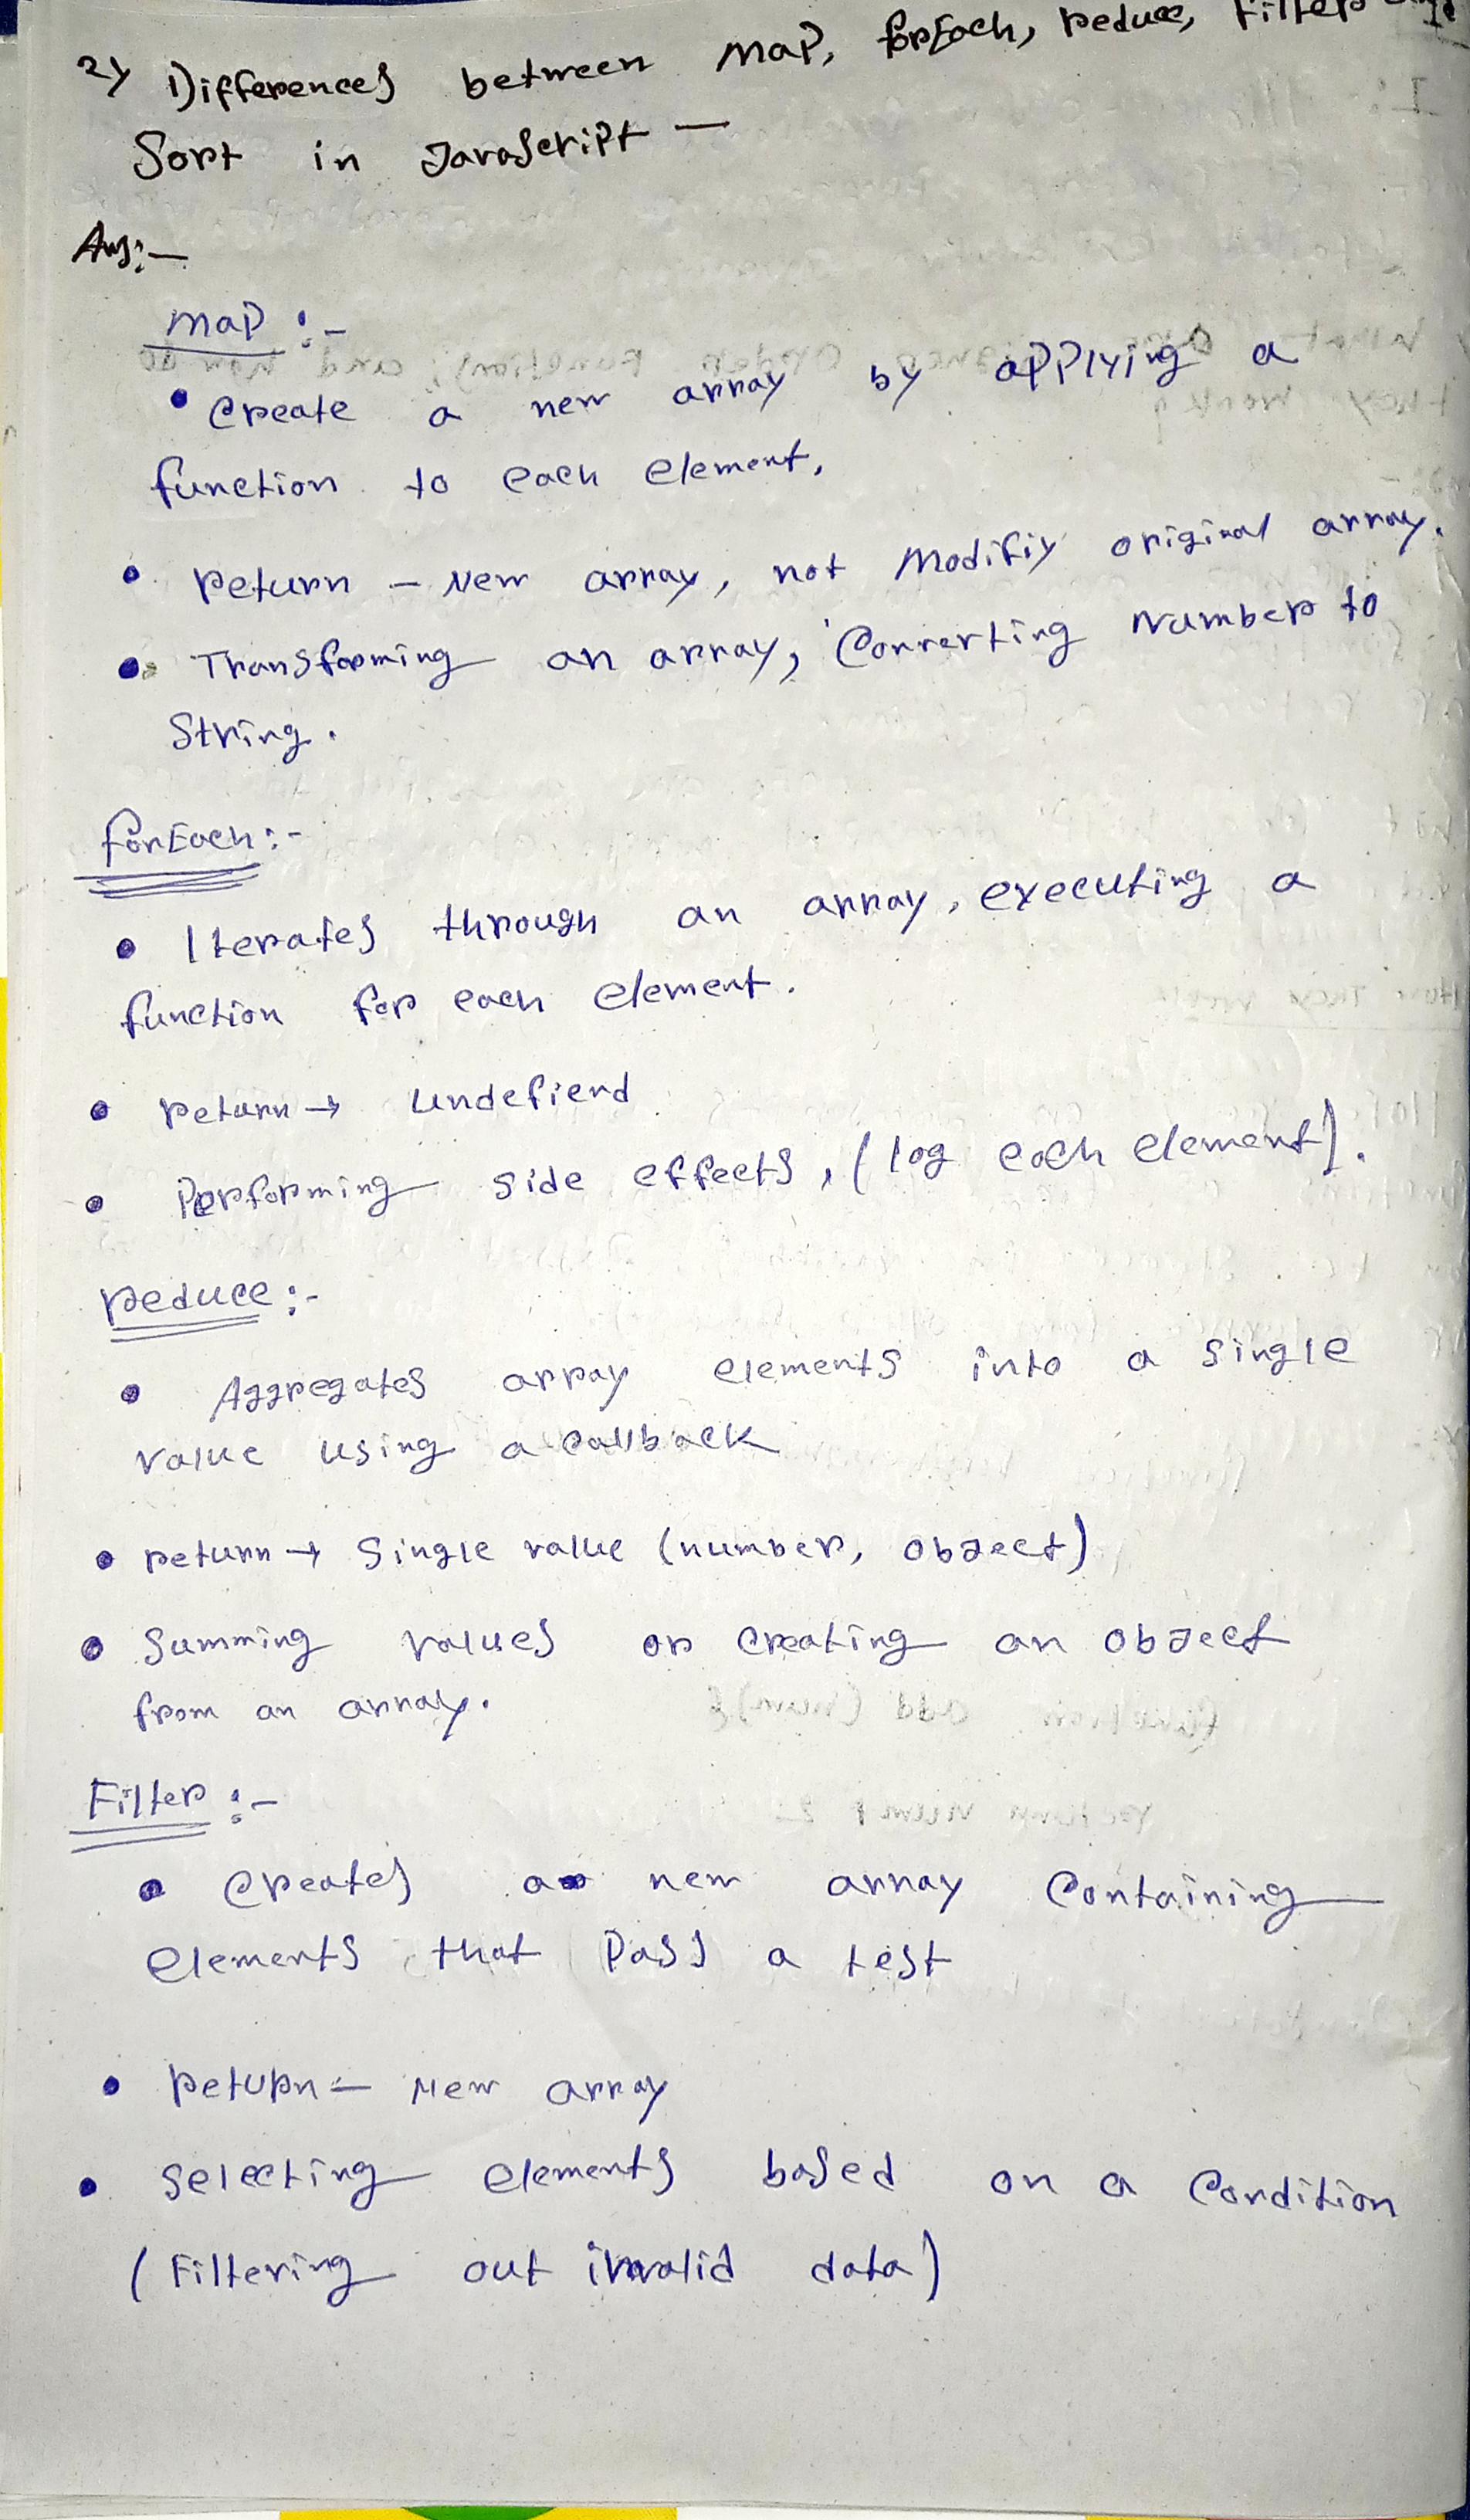 2) Differences between map, forEach, reduce, Filter and
Sort in JavaScript —
Ans:-
map :-
• Create a new array by applying a
function to each element.
• return - New array, not Modifiy original array.
• Transforming an array, Converting Number to
String.
forEach :-
• Iterates through an array, executing a
function for each element.
• return → Undefiend
• Performing side effects, (log each element).
reduce :-
• Aggregates array elements into a single
value using a callback
• return → Single value (number, object)
• Summing values or Creating an object
from an array.
Filter :-
• Creates a new array Containing
Elements that Pass a test
• return - New array
• Selecting elements based on a Condition
(Filtering out invalid data)